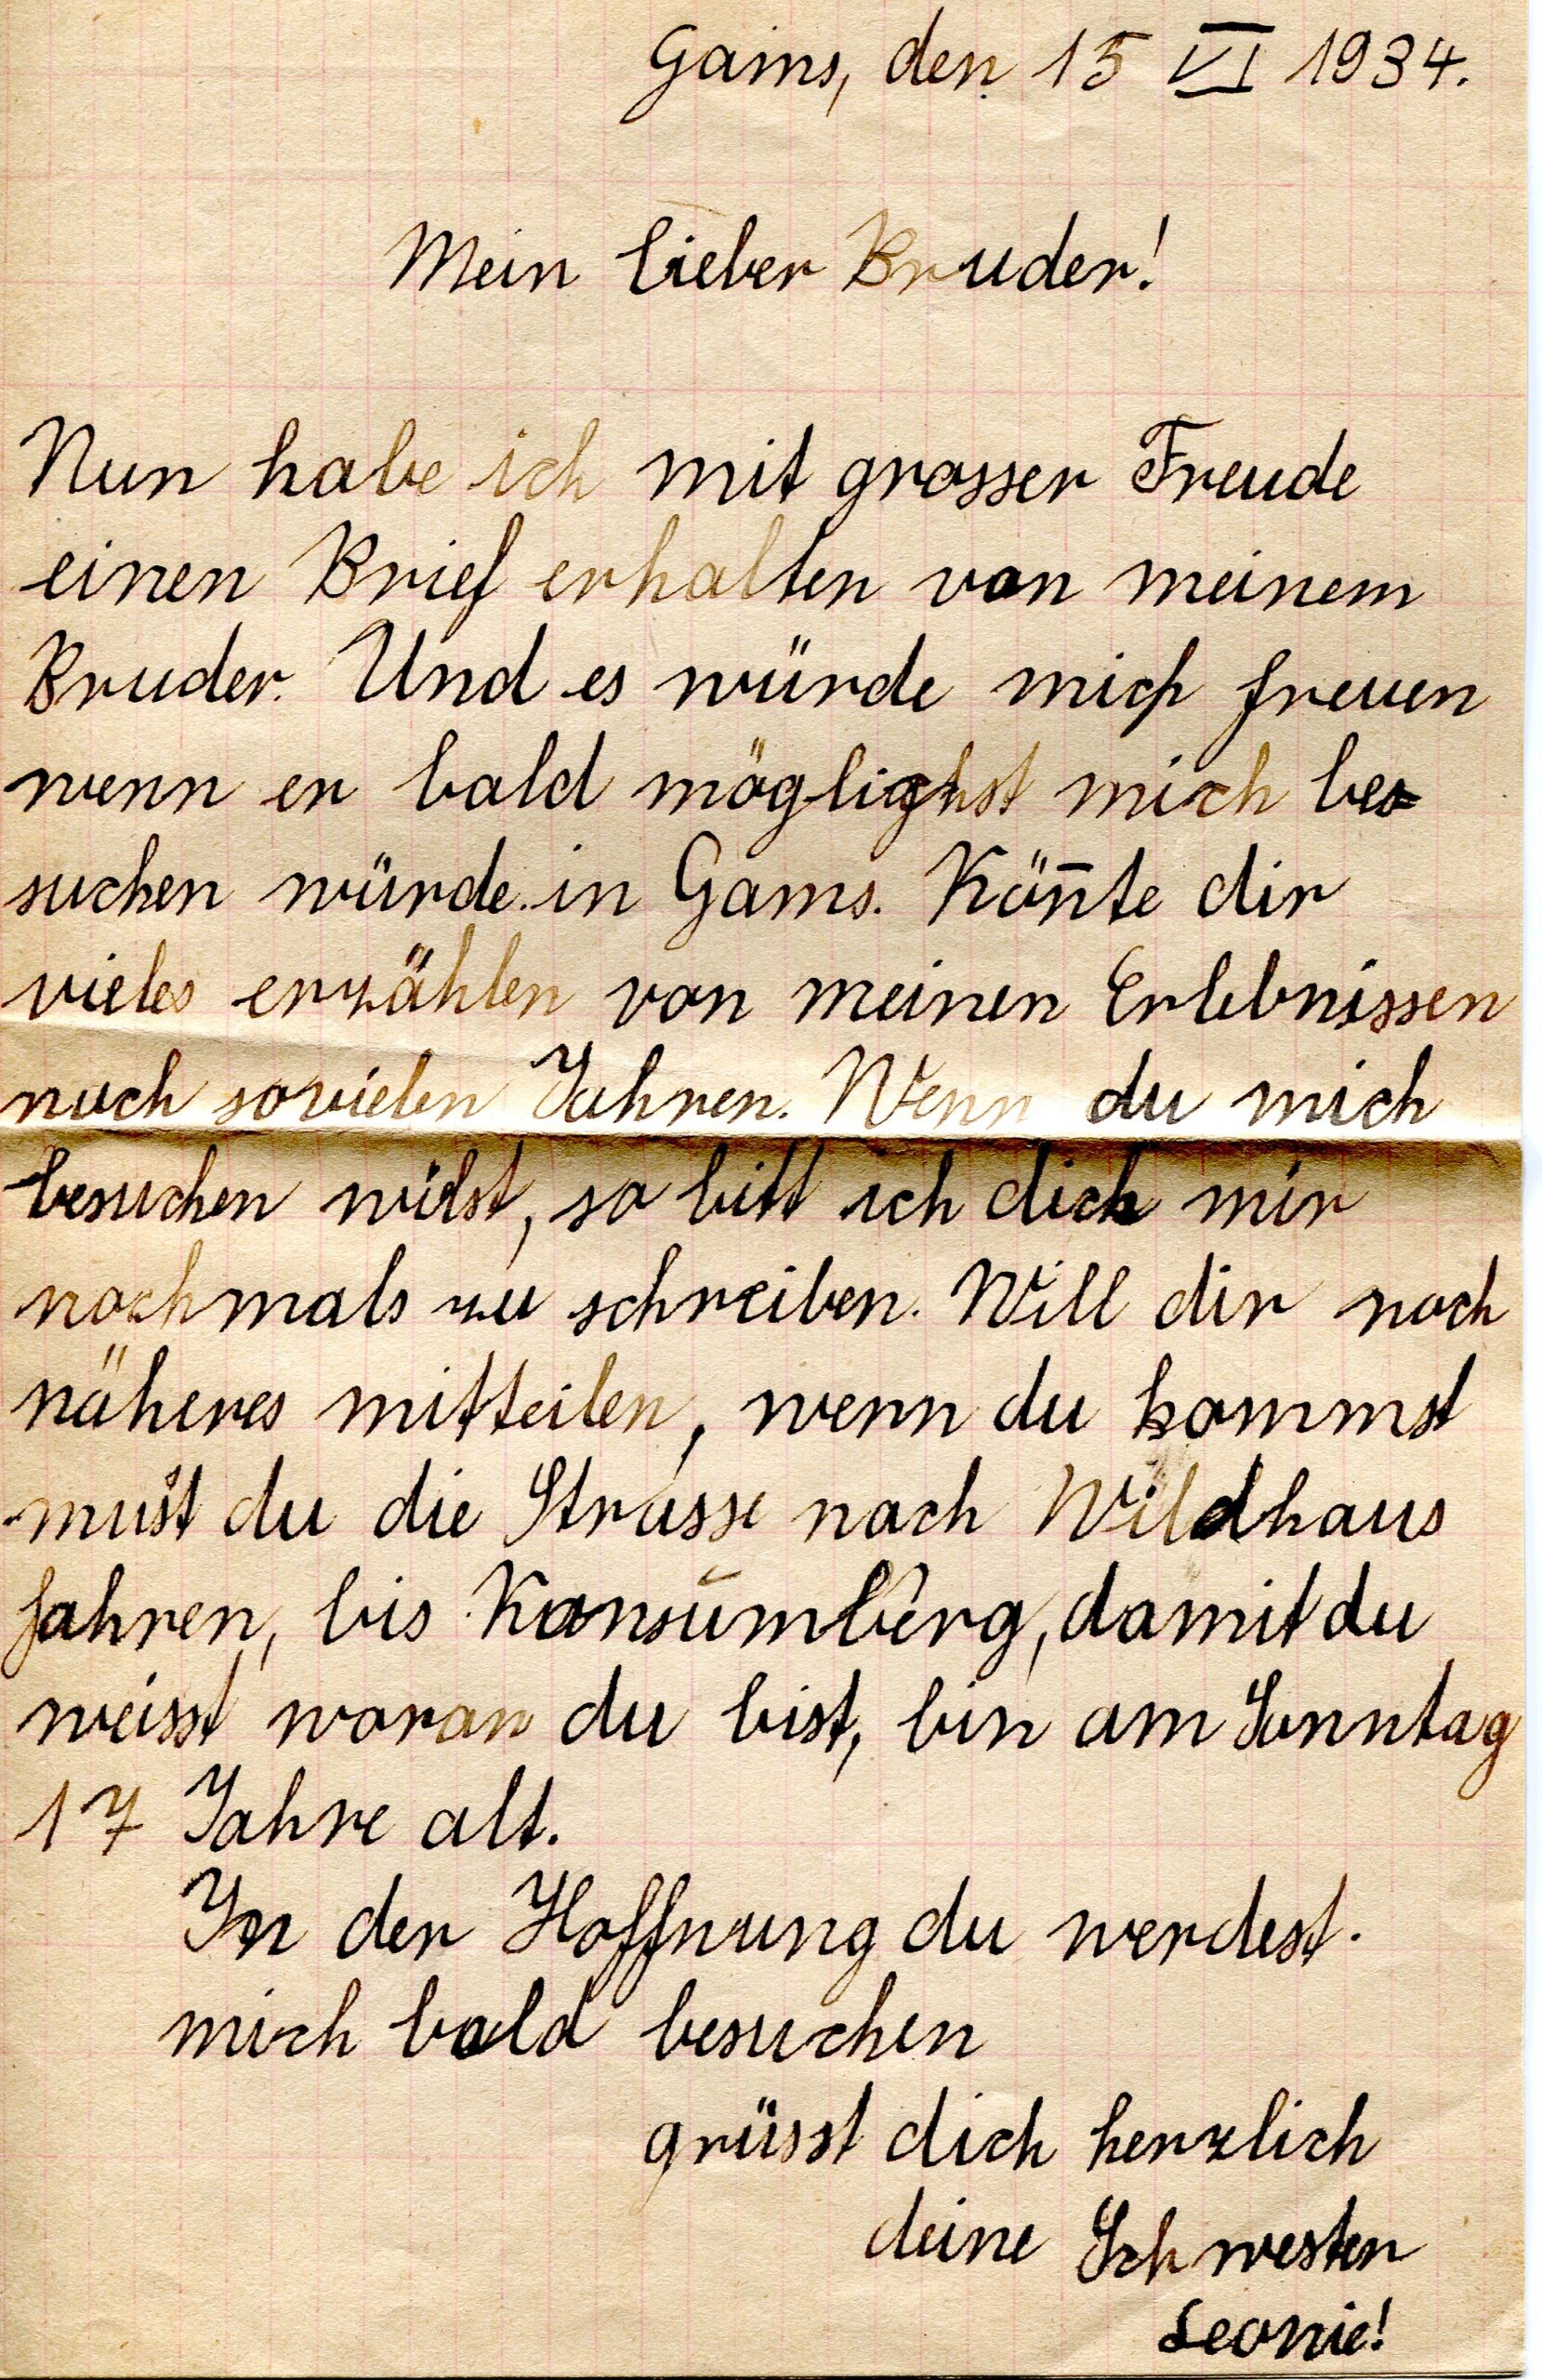 Gams, den 15 VI 1934.
Mein lieber Bruder!
Nun habe ich mit grosser Freude
einen Brief erhalten von meinem
Bruder. Und es würde mich freuen
wenn er bald möglichst mich be=
suchen würde in Gams. Kön̄te dir
vieles erzählen von meinen Erlebnissen
nach sovielen Jahren. Wenn du mich
besuchen wilst, so bitt ich dich mir
nochmals zu schreiben. Will dir noch
näheres mitteilen, wenn du kommst
must du die Strasse nach Wildhaus
fahren, bis Konsumberg, damit du
weisst woran du bist, bin am Sonntag
17 Jahre alt.
In der Hoffnung du werdest.
mich bald besuchen
grüsst dich herzlich
deine Schwester
Leonie!